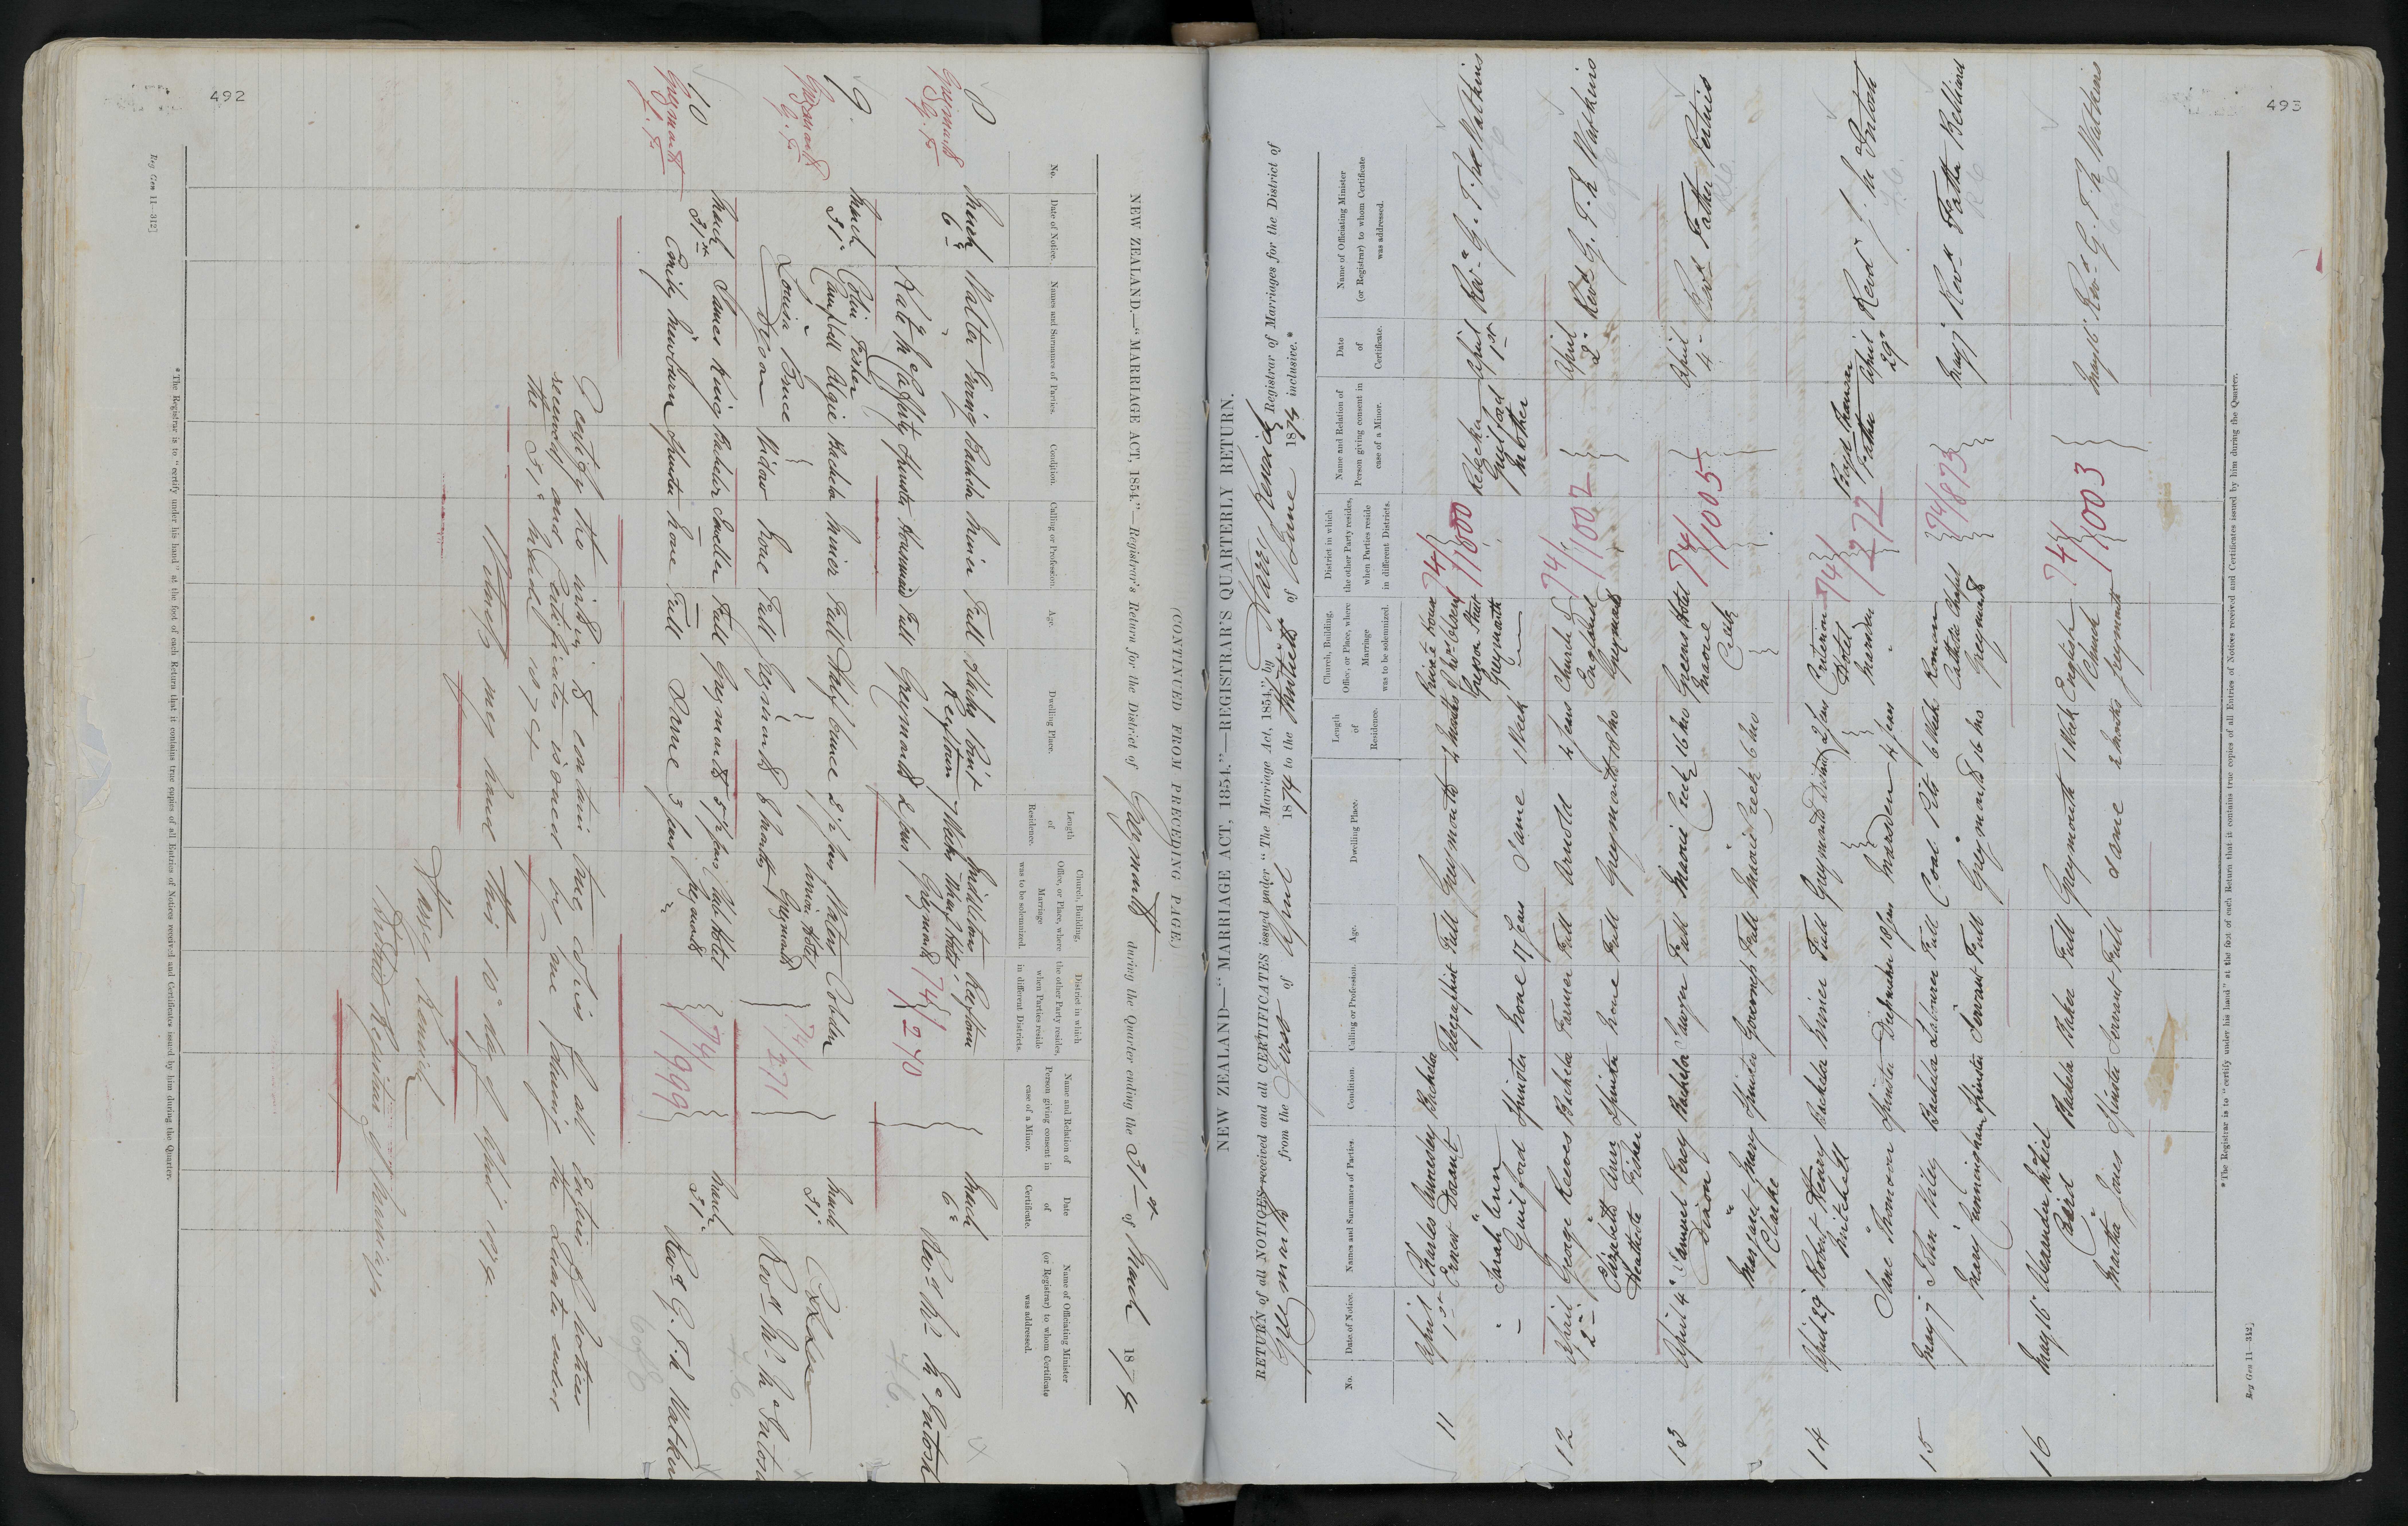 492
(CONTINUED FROM PRECEDING PAGE.)
NEW ZEALAND.—"MARRIAGE ACT, 1854."—Registrar's Return for the District of Greymouth during the Quarter ending the 31st of March 1874
No. Date of Notice. Names and Surnames of Parties. Condition. Calling or Profession. Age. Dwelling Place. Length of Residence. Church, Building, Office, or Place, where Marriage was to be solemnized. District in which the other Party resides, when Parties reside in different Districts. Name and Relation of Person giving consent in case of a Minor. Date of Certificate. Name of Officiating Minister (or Registrar) to whom Certificate was addressed.
8 March 6th Walter Ewing Bachelor Miner Full Reeftown 7 Weeks Middleton Wharf Hotel Reeftown March 6th Revd Wm McIntosh
Greymouth
Kate McCafferty Spinster Housemaid Full Greymouth 2 years Greymouth 74/270
9 March 31st Colin Fisher Campbell Algie Bachelor Miner Full Half Ounce 2½ years Peter Cobden Union Hotel Greymouth March 31st Cobden
Greymouth
Louisa Bruce Dixon Widow None Full Greymouth 8 months 74/271 Revd Wm McIntosh
10 March 31st James King Bachelor Full Greymouth 5½ years Club Hotel Greymouth 74/999 March 31st Revd G. T. N. Watkins
Greymouth
Emily Newbarn Spinster None Full Same 3 years
I certify the within to contain true copies of all Entries of Notices
received and Certificates issued by me during the Quarter ended
the 31st March 1874
Witness my hand this 10th day of April 1874.
Harry Kenrick
District Registrar of Marriages
*The Registrar is to "certify under his hand" at the foot of each Return that it contains true copies of all Entries of Notices received and Certificates issued by him during the Quarter.
Reg Gen 11—312]
493
NEW ZEALAND—"MARRIAGE ACT, 1854."—REGISTRAR'S QUARTERLY RETURN.
RETURN of all NOTICES received and all CERTIFICATES issued under "The Marriage Act, 1854," by Harry Kenrick Registrar of Marriages for the District of
Greymouth from the First of April 1874 to the Thirtieth of June 1874 inclusive.*
No. Date of Notice. Names and Surnames of Parties. Condition. Calling or Profession. Age. Dwelling Place. Length of Residence. Church, Building, Office, or Place, where Marriage was to be solemnized. District in which the other Party resides, when Parties reside in different Districts. Name and Relation of Person giving consent in case of a Minor. Date of Certificate. Name of Officiating Minister (or Registrar) to whom Certificate was addressed.
11 April 1st Charles Annesley Ernest Davant Bachelor Telegraphist Full Greymouth 4 Months Private House Gresson Street Greymouth 74/1000 Rebecka Guilford Mother April 1st Revd G. T. N. Watkins
Sarah Ann Guilford Spinster None 17 Years Same 1 Week
12 April 2nd George Reeves Bachelor Farmer Full Arnold 4 Years Church of England Greymouth 74/1002 April 2nd Revd G. T. N Watkins
Elizabeth Ann Heathcote Fisher Spinster None Full Greymouth 18 Mo
13 April 4th Samuel Percy Dixon Bachelor Sawyer Full Maori Creek 16 Mo Greens Hotel Maori Creek 74/1005 April 4th Revd Father
Margaret Mary Clarke Spinster Governess Full Maori Creek 6 Mo
14 April 29 Robert Henry Mitchell Bachelor Miner Full Greymouth District 2 Years Criterion Hotel Marsden 74/272 Father April 29th Revd J. McIntosh
Jane Spinster Dressmaker 18 Years Marsden 4 Years
15 May 7 John Wiley Bachelor Labourer Full Coal Pits 6 Weeks Roman Catholic Chapel Greymouth 74/873 May 7 Revd Father Belliard
Mary Cunningham Spinster Servant Full Greymouth 16 Mos
16 May 16 Alexander McNiel Baird Bachelor Baker Full Greymouth 1 Week English Church Greymouth 74/1003 May 16 Revd G. T. N Watkins
Martha Jones Spinster Servant Full Same 2 Months
*The Registrar is to "certify under his hand" at the foot of each Return that it contains true copies of all Entries of Notices received and Certificates issued by him during the Quarter.
Reg Gen 11—312]